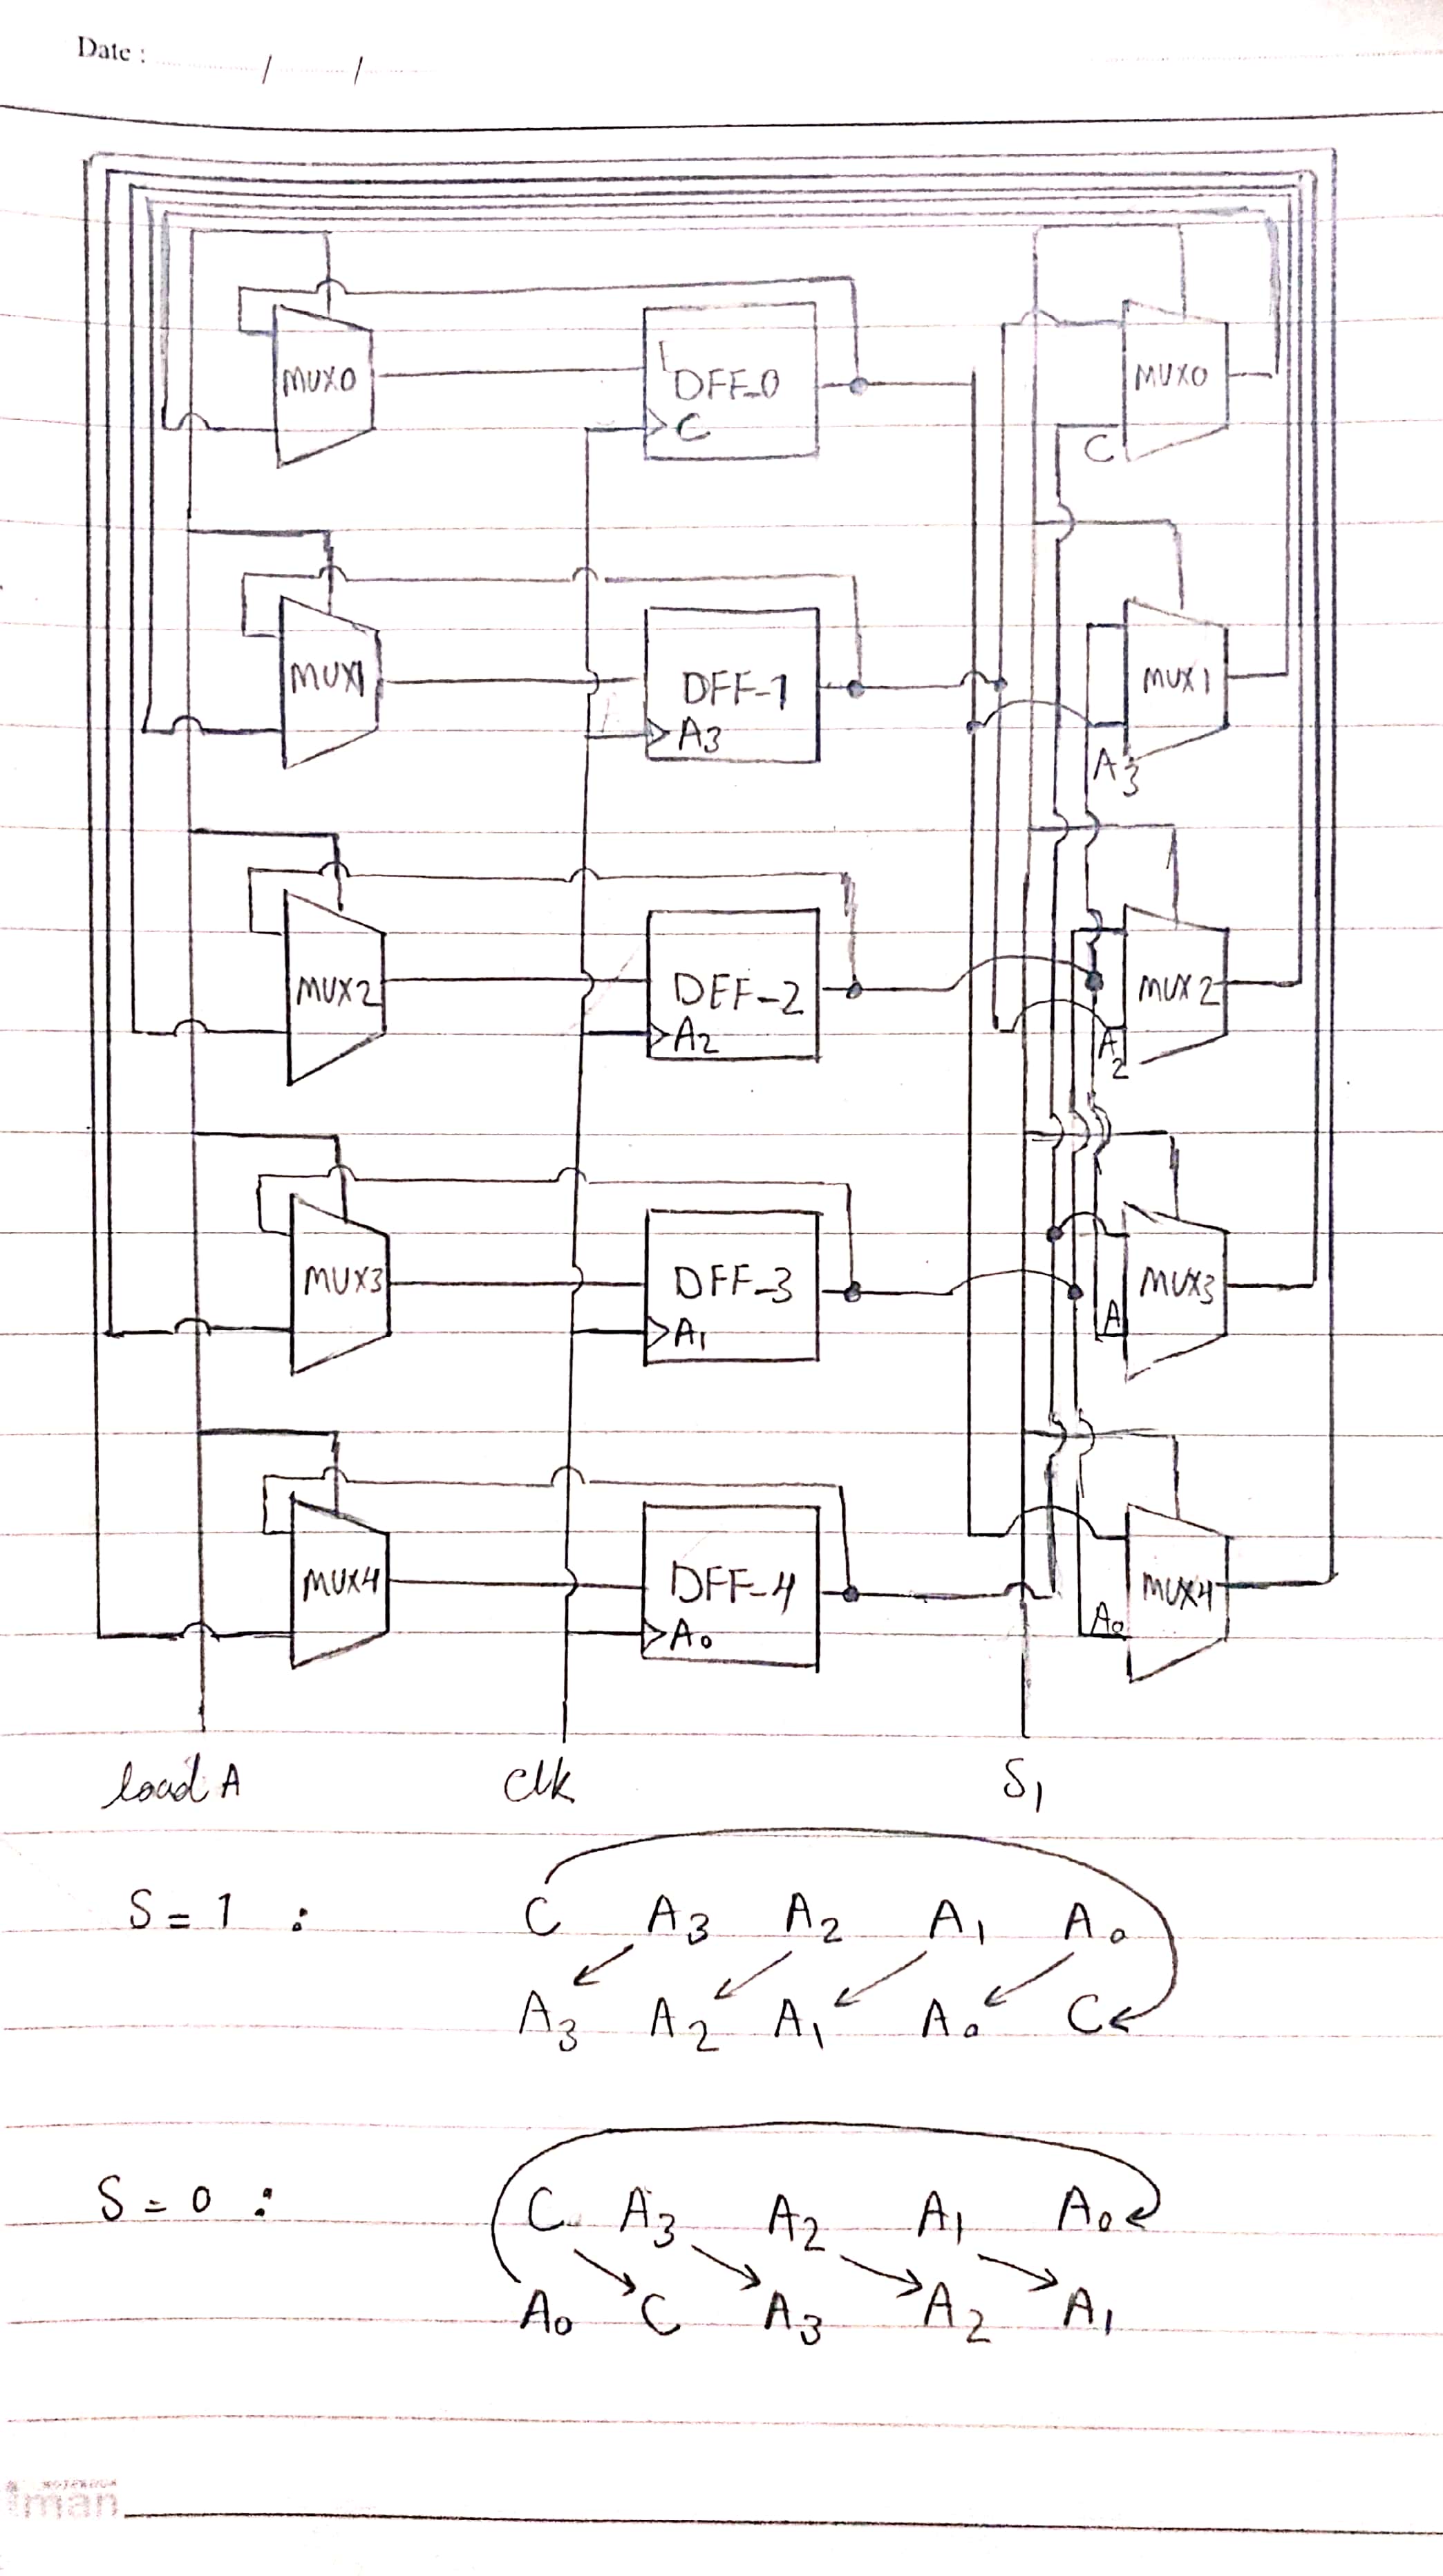 Date : / /
MUX0 DFF-0 MUX0
C C
MUX1 DFF-1 MUX1
A3 A3
MUX2 DEF-2 MUX2
A2 A2
MUX3 DFF-3 MUX3
A1 A
MUX4 DFF-4 MUX4
A0 A0
load A clk S1
S = 1 : C A3 A2 A1 A0
A3 A2 A1 A0 C
S = 0 : C A3 A2 A1 A0
A0 C A3 A2 A1